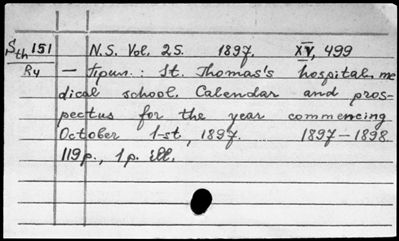 Sth 151 N.S. Vol. 25. 1897. XV, 499
R4 — Припл.: St. Thomas's hospital me
dical school. Calendar and pros-
pectus for the year commencing
October 1-st, 1897. 1897—1898
119p., 1p. ill.